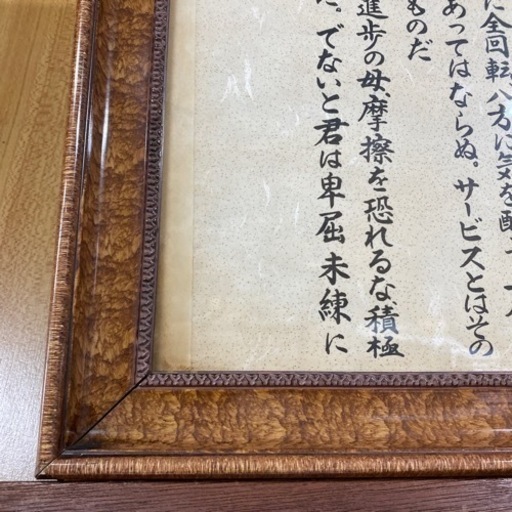 に全回転、八方に気を配
あってはならぬ。サービスとはその
ものだ
進歩の母、摩擦を恐れるな、積極
でないと君は卑屈未練に